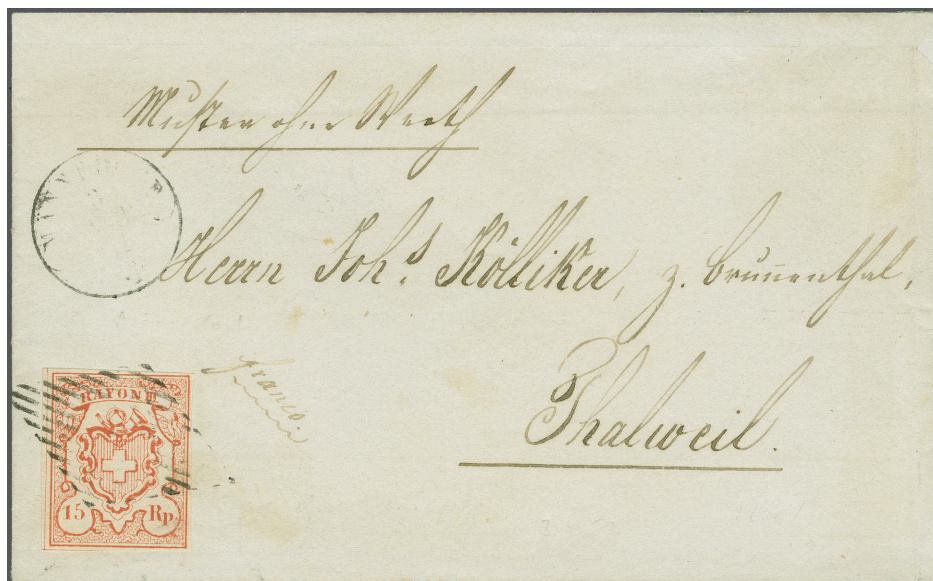 Muster ohne Werth
Herrn Johs. Kölliker, z. Brunnenthal,
franco
Thalweil.
RAYON
15 Rp.